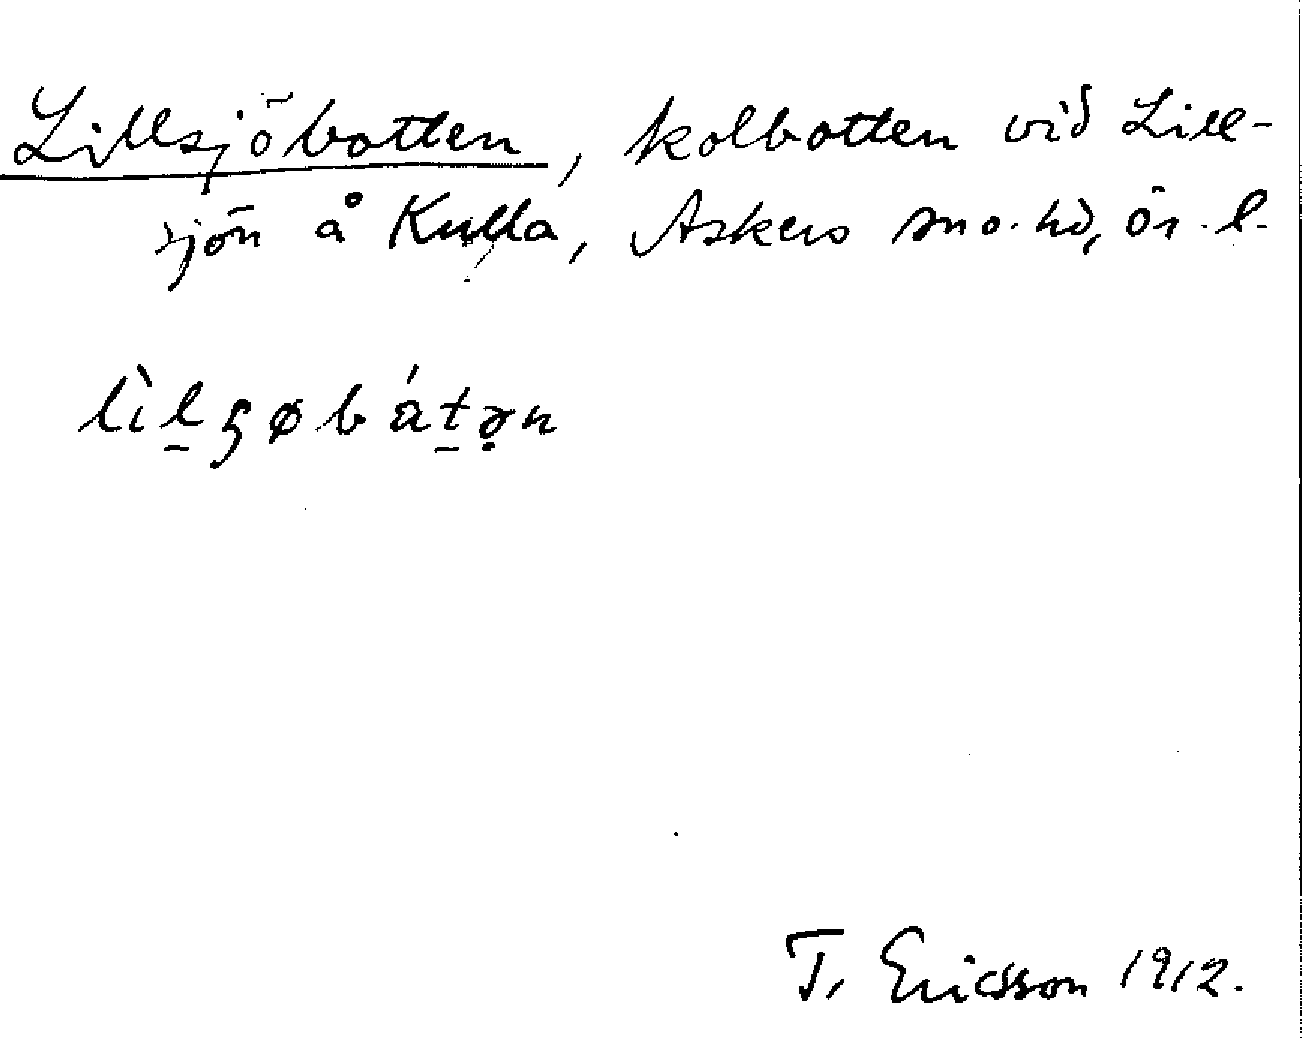 Lillsjöbotten, kolbotten vid Lill-
sjön å Kulla, Askers sn o. hd, ör. l.
lìl̠ʂøbát̠ə̣n
T. Ericsson 1912.